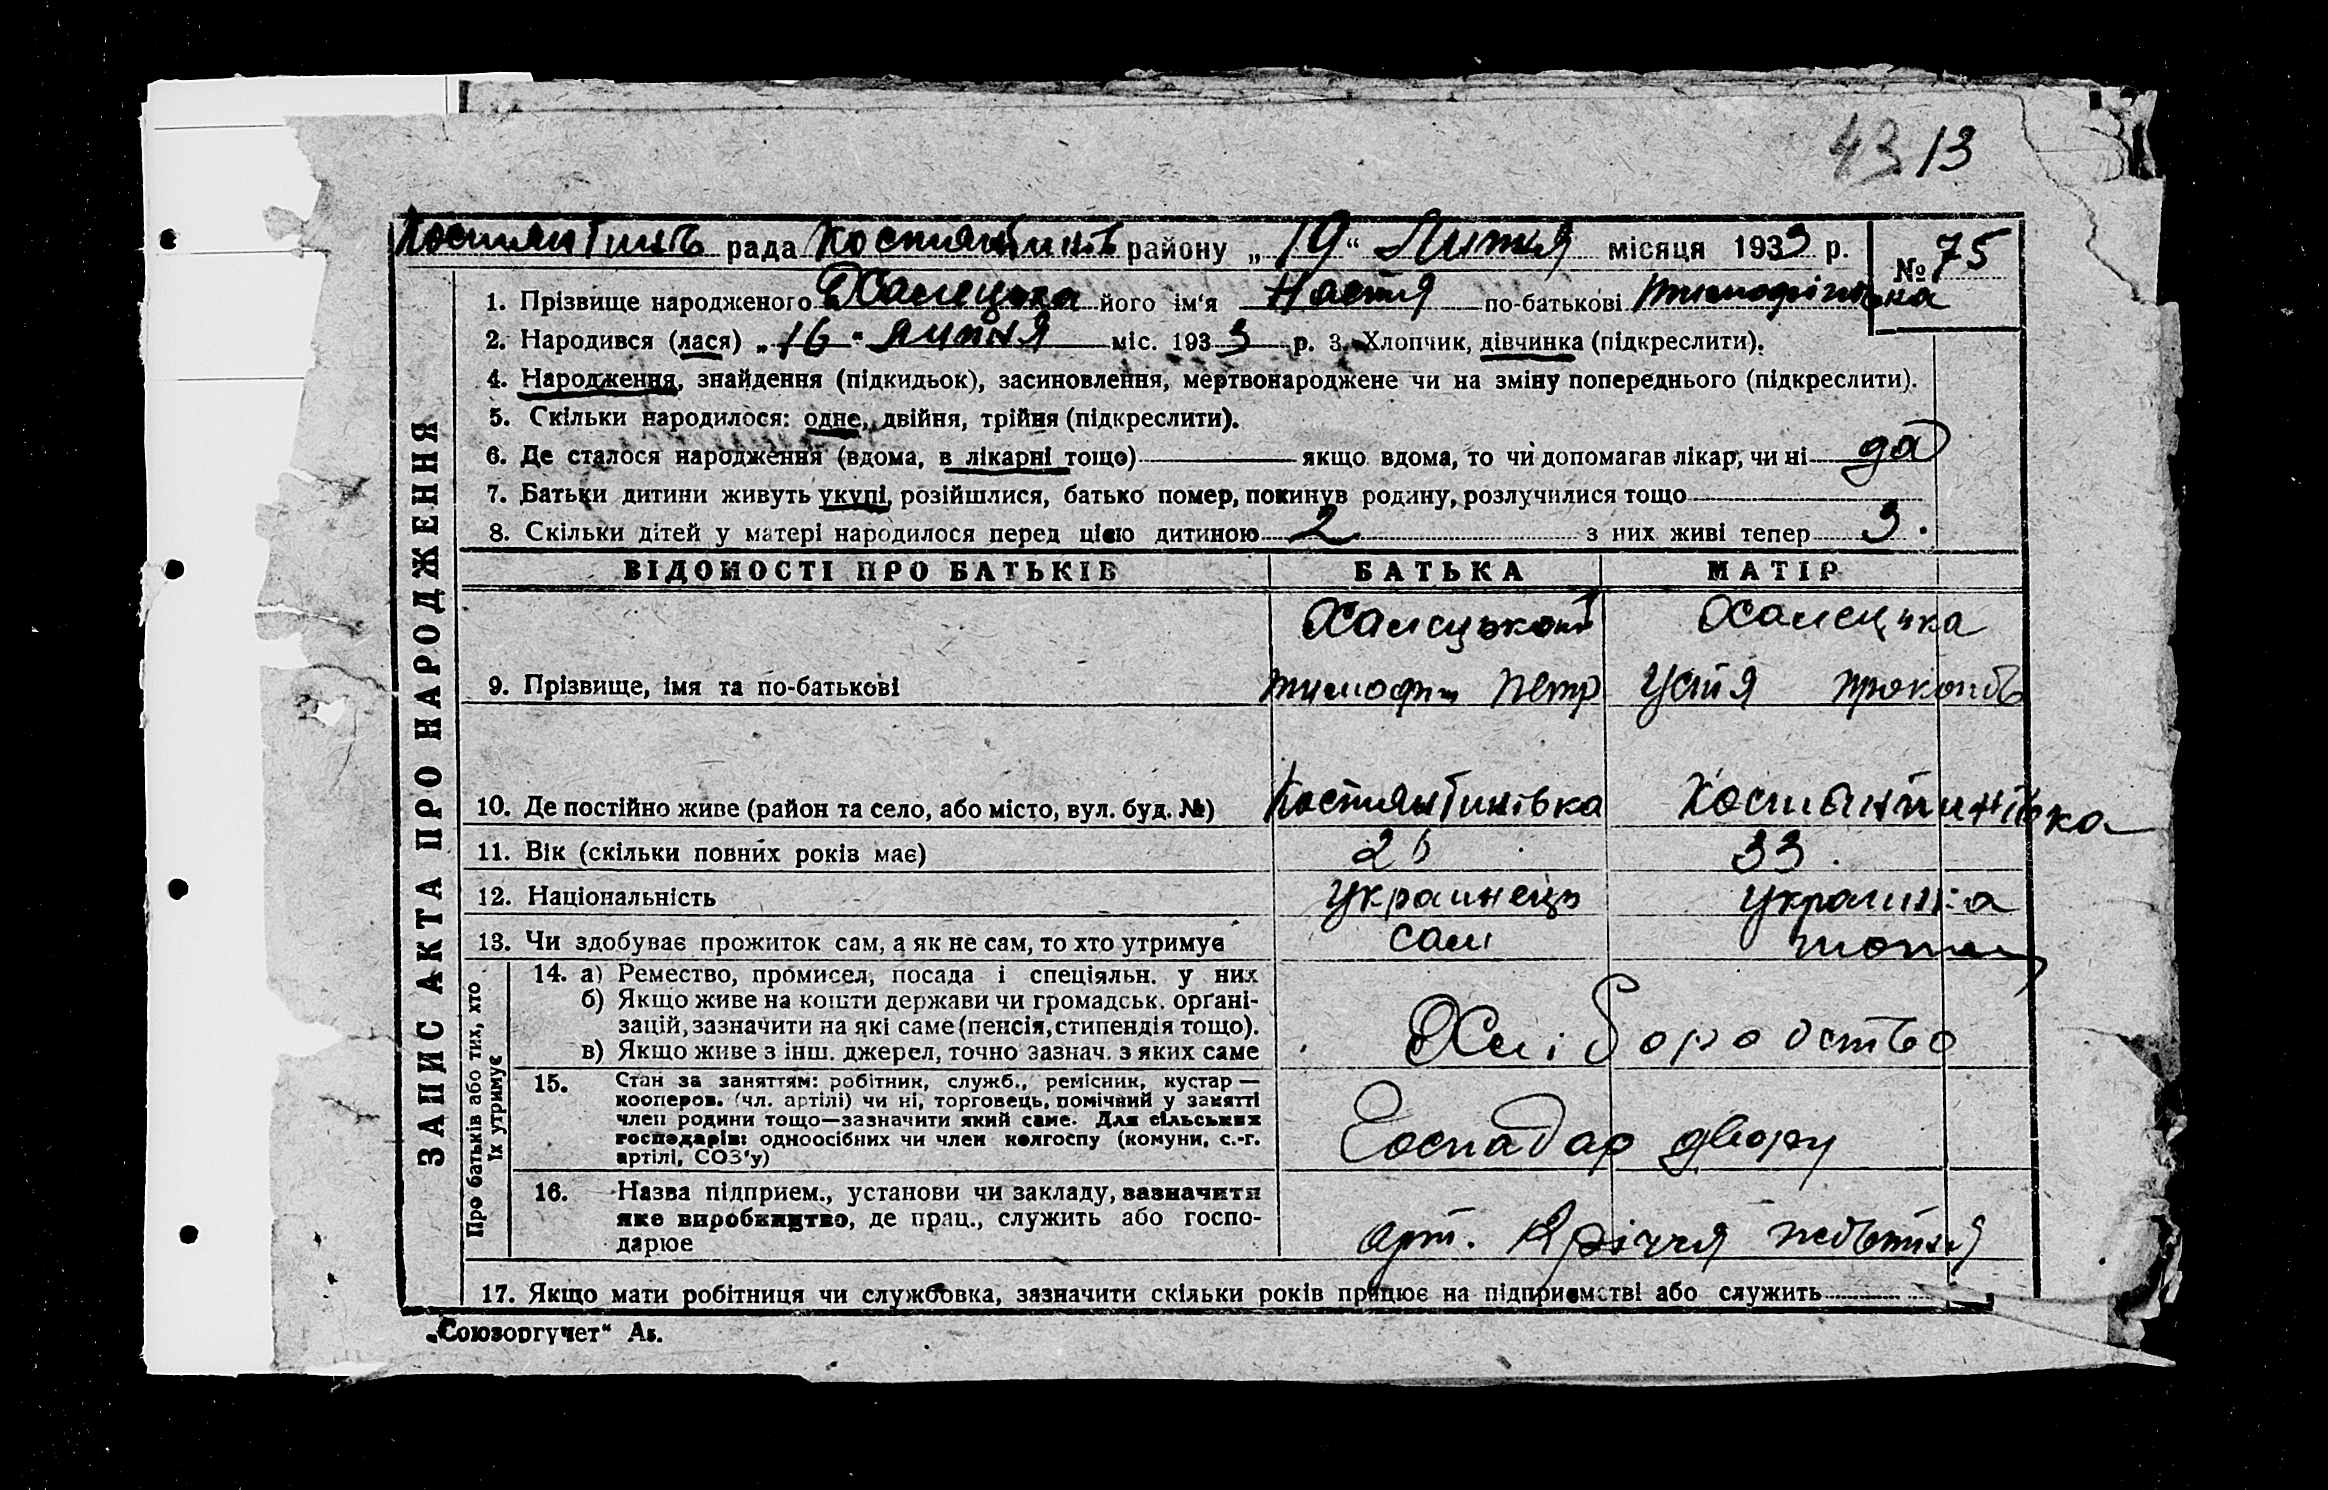 43 13
Костянтинів рада Костянтинів району „19“ Липня місяця 1933 р. № 75
1. Прізвище народженого Хамецька його ім'я Настя по-батькові тимофіївна
2. Народився (лася) „16“ липня міс. 1933 р. 3. Хлопчик, дівчинка (підкреслити).
4. Народження, знайдення (підкидьок), засиновлення, мертвонароджене чи на зміну попереднього (підкреслити).
5. Скільки народилося: одне, двійня, трійня (підкреслити).
6. Де сталося народження (вдома, в лікарні тощо) якщо вдома, то чи допомагав лікар, чи ні да
7. Батьки дитини живуть укупі, розійшлися, батько помер, покинув родину, розлучилися тощо
8. Скільки дітей у матері народилося перед цією дитиною 2 з них живі тепер 3.
ВІДОМОСТІ ПРО БАТЬКІВ БАТЬКА МАТІР
Хамецький Хамецька
9. Прізвище, імя та по-батькові тимофій Петр Устя прокопів
10. Де постійно живе (район та село, або місто, вул. буд. №) Костянтинівка Костянтинівка
11. Вік (скільки повних років має) 33.
12. Національність украинець украинка
13. Чи здобуває прожиток сам, а як не сам, то хто утримує сам
14. а) Ремество, промисел, посада і спеціяльн. у них
б) Якщо живе на кошти держави чи громадськ. орґані-
зацій, зазначити на які саме (пенсія, стипендія тощо).
в) Якщо живе з інш. джерел, точно зазнач. з яких саме Хліборобство
15. Стан за заняттям: робітник, служб., ремісник, кустар —
кооперов. (чл. артілі) чи ні, торговець, помічний у занятті
член родини тощо—зазначити який саме. Для сільських
господарів: одноосібних чи член колгоспу (комуни, с.-г.
артілі, СОЗ'у) Господар двору
16. Назва підприєм., установи чи закладу, зазначити
яке виробництво, де прац., служить або госпо-
дарює арт. річчя жовтня
17. Якщо мати робітниця чи службовка, зазначити скільки років працює на підприємстві або служить
ЗАПИС АКТА ПРО НАРОДЖЕННЯ
Про батьків або тих, хто
їх утримує
„Союзоргучет“ Аз.